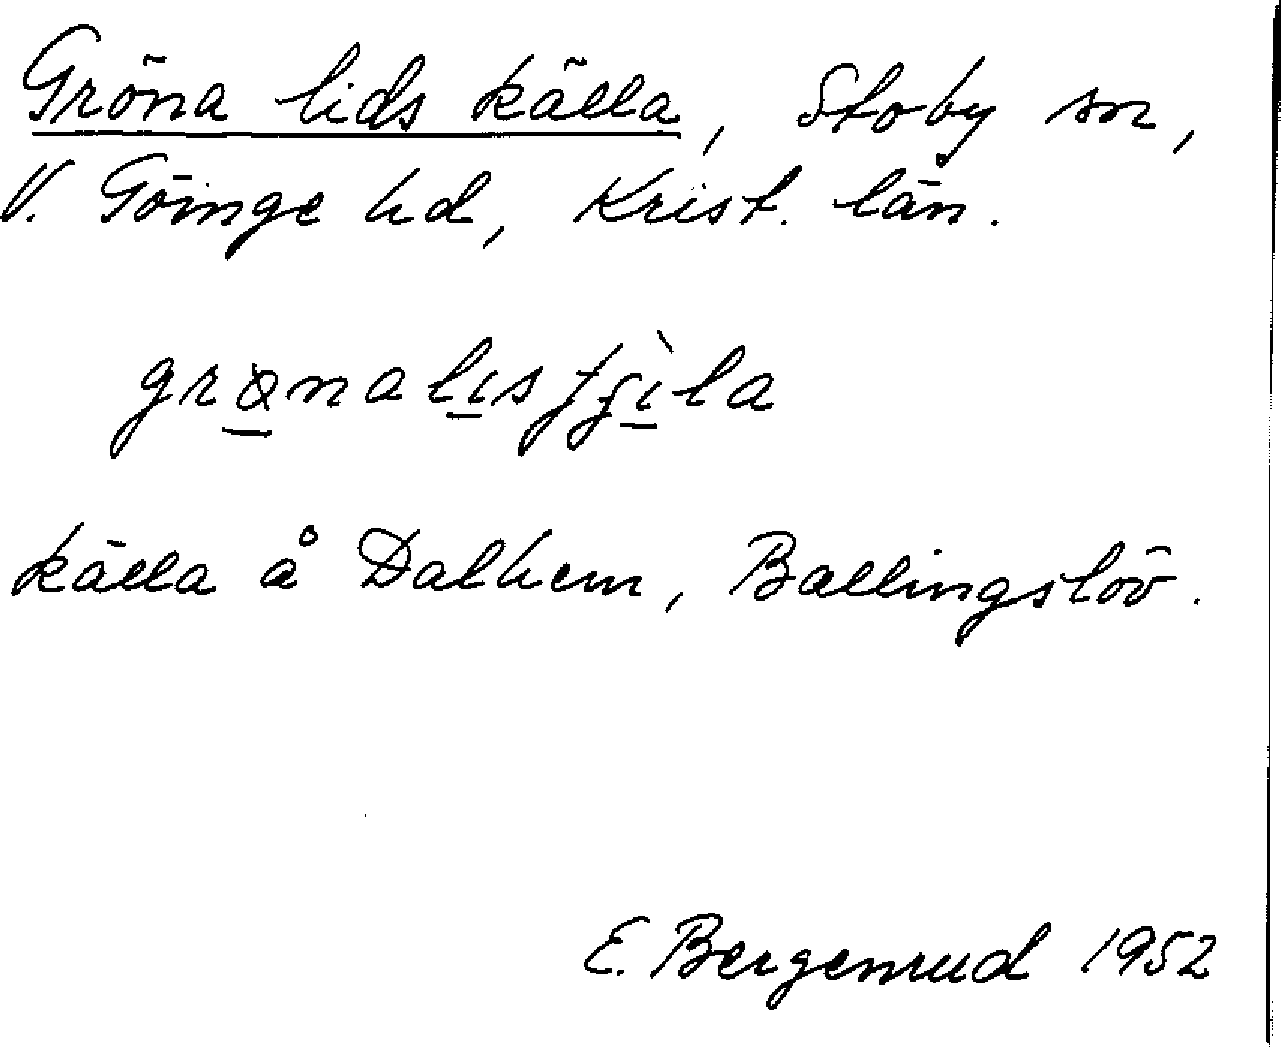 Gröna lids källa, Stoby sn,
V. Göinge hd, Krist. län.
grønalısʃʝìla
källa å Dalhem, Ballingslöv.
E. Bergenrud 1952